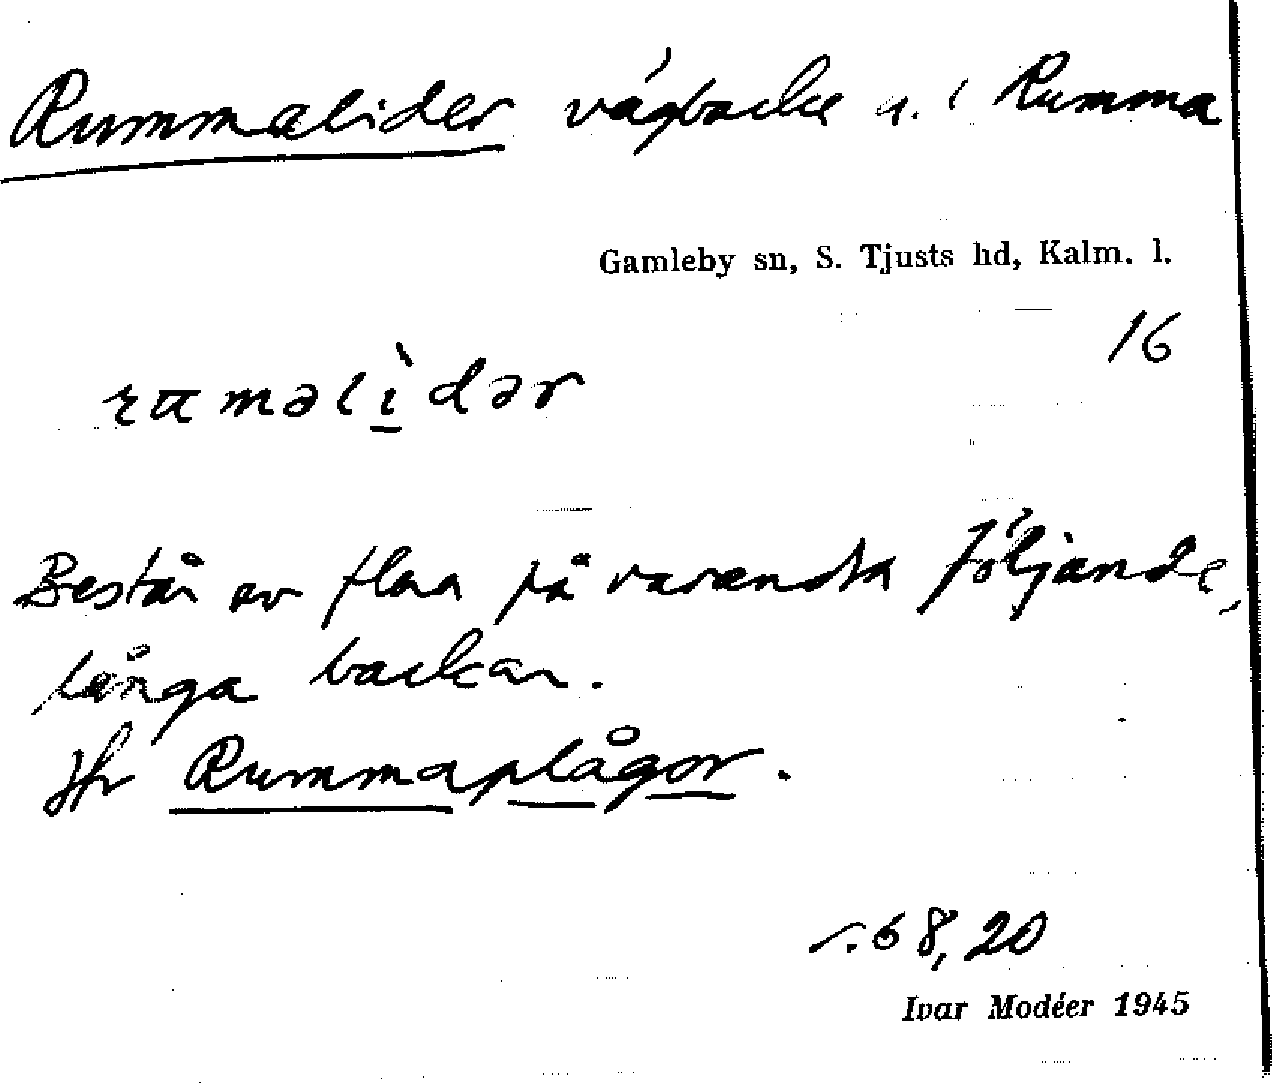 Rummalider vägbacke n. i Rumma
Gamleby sn, S. Tjusts hd, Kalm. l.
16
ruməlìdər
Består av flera på varandra följande,
långa backar.
Jfr Rummaplågor.
s. 68, 20
Ivar Modéer 1945